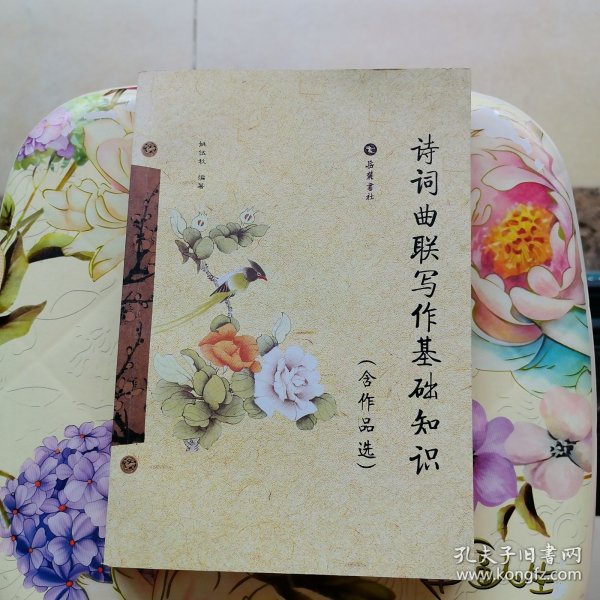 诗词曲联写作基础知识
(含作品选)
岳麓书社
编著
孔夫子旧书网
www.kongfz.com